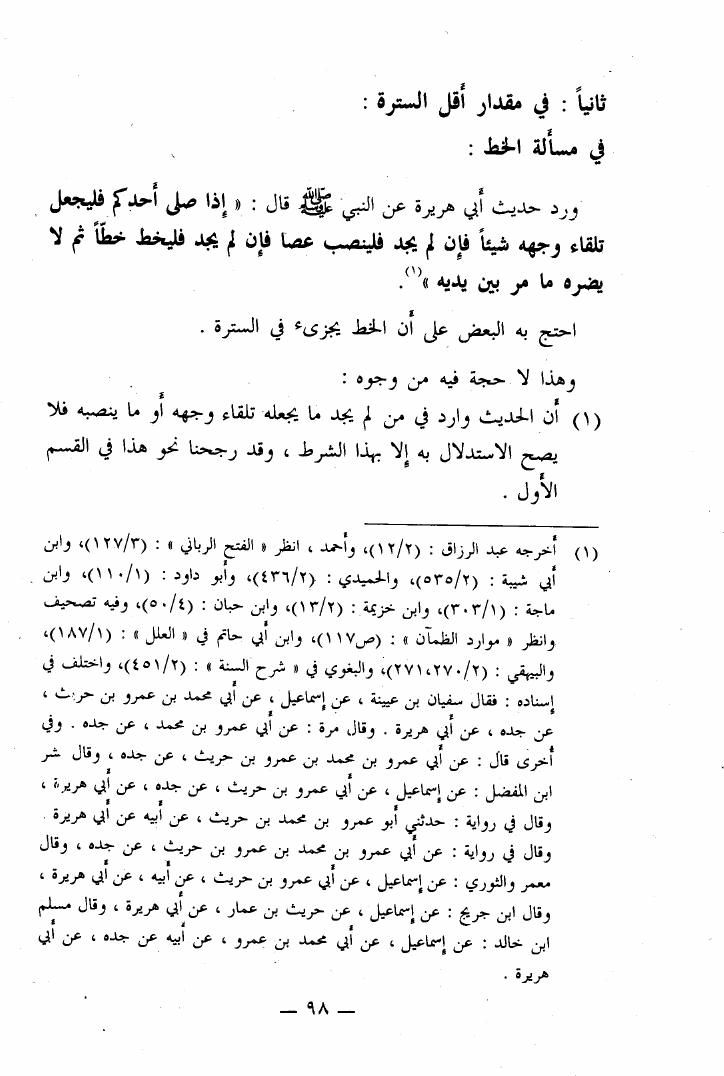 ثانياً : في مقدار أقل السترة :
في مسألة الخط :
ورد حديث أبي هريرة عن النبي ﷺ قال : « إذا صلى أحدكم فليجعل
تلقاء وجهه شيئاً فإن لم يجد فلينصب عصا فإن لم يجد فليخط خطّاً ثم لا
يضره ما مر بين يديه »(١).
احتج به البعض على أن الخط يجزىء في السترة .
وهذا لا حجة فيه من وجوه :
(١) أن الحديث وارد في من لم يجد ما يجعله تلقاء وجهه أو ما ينصبه فلا
يصح الاستدلال به إلا بهذا الشرط ، وقد رجحنا نحو هذا في القسم
الأول .
(١) أخرجه عبد الرزاق : (١٢/٢)، وأحمد ، انظر « الفتح الرباني » : (١٢٧/٣)، وابن
أبي شيبة : (٥٣٥/٢)، والحميدي : (٤٣٦/٢)، وأبو داود : (١١٠/١)، وابن
ماجة : (٣٠٣/١)، وابن خزيمة : (١٣/٢)، وابن حبان : (٥٠/٤)، وفيه تصحيف
وانظر « موارد الظمآن » : (ص١١٧)، وابن أبي حاتم في « العلل » : (١٨٧/١)،
والبيهقي : (٢٧١،٢٧٠/٢)، والبغوي في « شرح السنة » : (٤٥١/٢)، واختلف في
إسناده : فقال سفيان بن عيينة ، عن إسماعيل ، عن أبي محمد بن عمرو بن حريث ،
عن جده ، عن أبي هريرة . وقال مرة : عن أبي عمرو بن محمد ، عن جده . وفي
أخرى قال : عن أبي عمرو بن محمد بن عمرو بن حريث ، عن جده ، وقال شر
ابن المفضل : عن إسماعيل ، عن أبي عمرو بن حريث ، عن جده ، عن أبي هريرة ،
وقال في رواية : حدثني أبو عمرو بن محمد بن حريث ، عن أبيه عن أبي هريرة .
وقال في رواية : عن أبي عمرو بن محمد بن عمرو بن حريث ، عن جده ، وقال
معمر والثوري : عن إسماعيل ، عن أبي عمرو بن حريث ، عن أبيه ، عن أبي هريرة ،
وقال ابن جريج : عن إسماعيل ، عن حريث بن عمار ، عن أبي هريرة ، وقال مسلم
ابن خالد : عن إسماعيل ، عن أبي محمد بن عمرو ، عن أبيه عن جده ، عن أبي
هريرة .
— ٩٨ —